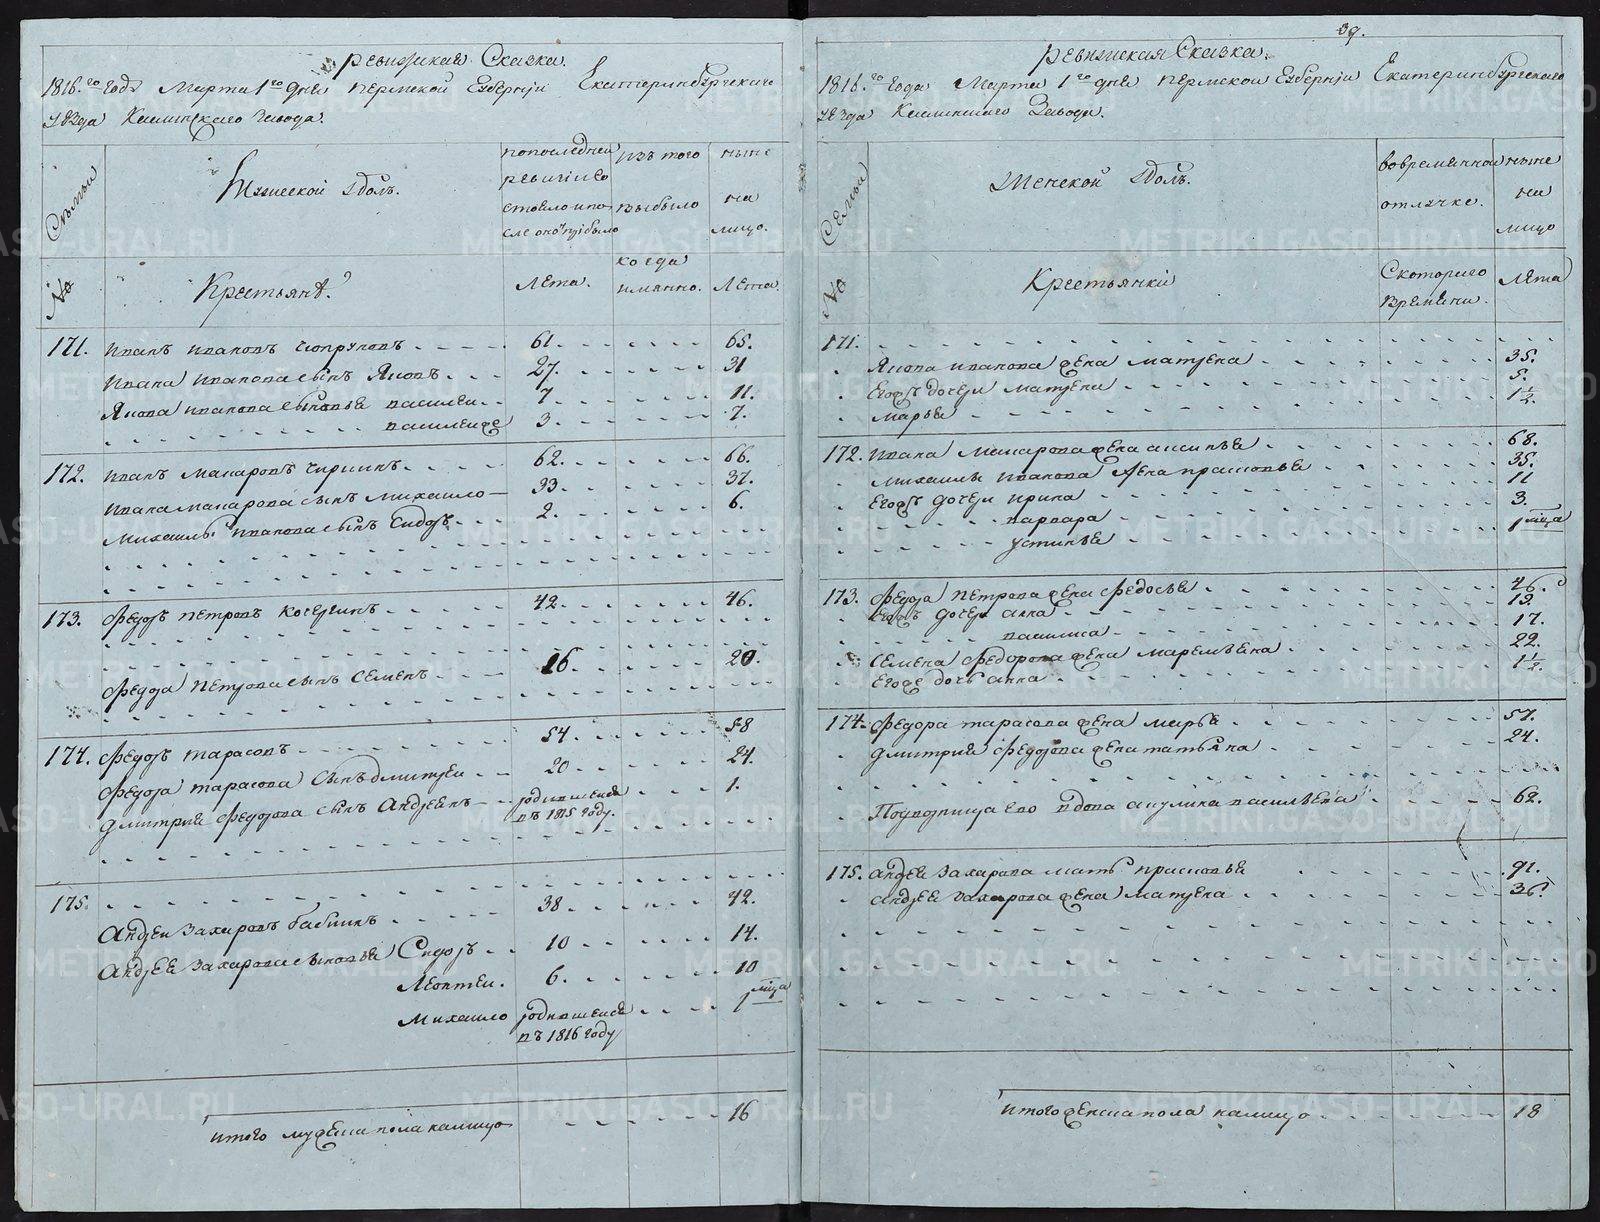 39.
Ревизская Сказка.
1816.го Годъ Марта 1го дня Пермской Губерніи Екатеринбургскаго
уезда Каслинскаго Завода.
Семьи
№
Мужеской полъ.
Крестьянѣ.
по последней ревизіи состояло и после оной прибыло
лета.
изъ того выбыло
когда имянно.
ныне на лицо.
лета.
171. Иванъ Ивановъ Чюпруновъ 61 65.
Ивана Иванова сынъ Яковъ 27. 31
Якова Иванова сыновья Василеи 7 11.
Василеи же 3. 7.
172. Иванъ Макаровъ Ширшикъ 62. 66.
Ивана Макарова сынъ Михаило 33 37.
Михаилы Иванова сынъ Сидоръ 2. 6.
173. Федоръ Петровъ Кочергинъ 42 46.
Федора Петрова сынъ Семенъ 16 20.
174. Федоръ Тарасовъ 54 58
Федора Тарасова сынъ Дмитреи 20 24.
Дмитрия Федорова сынъ Андреянъ родившеися въ 1815 году. 1.
175. Андреи Захаровъ Бабкинъ 38 42.
Андрея Захарова сыновья Сидоръ 10 14.
Леонтеи. 6. 10
Михаило родившеися въ 1816 году 1 мца
Итого мужеска пола налицо 16
Ревизская Сказка.
1816.го года Марта 1го дня Пермской Губерніи Екатеринбургскаго
уезда Каслинскаго Завода.
Семьи
№
Женской полъ.
Крестьянки
во временной отлучке.
Скотораго времени.
ныне на лицо
лета
171.
Якова Иванова жена Матрена 35.
Егожъ дочери Матрена 5.
Марья 1 1/2.
172. Ивана Макарова жена Аксинья 68.
Михаилы Иванова жена Прасковья 35.
Егожъ дочери Ирина 11
Варвара 3.
Устинья 1 мца
173. Федора Петрова жена Федосья 46.
Егожъ дочери Анна 19.
Василиса 17.
Семена Федорова жена Маремьяна 22.
Егоже дочь Анна 1 1/2.
174. Федора Тарасова жена Марья 57.
Дмитрия Федорова жена Татьяна 24.
вдова Акулина Васильева 62.
175. Андрея Захарова мать Прасковья 91.
Андрея Захарова жена Матрена 36
Итого женска пола налицо 18
METRIKI.GASO-URAL.RU